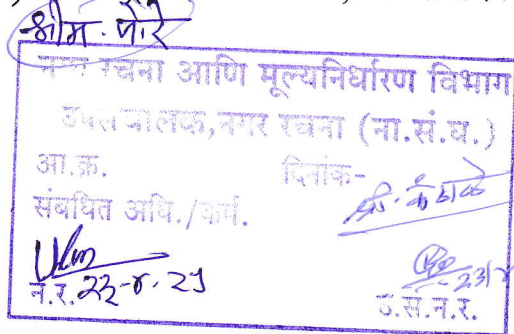 श्रीम. पोरे
नगर रचना आणि मूल्यनिर्धारण विभाग
उपसंचालक,नगर रचना (ना.सं.घ.)
आ.क्र. दिनांक-
संबधित अधि./कर्म.
न.र. २३-४-२१
उ.सं.न.र.